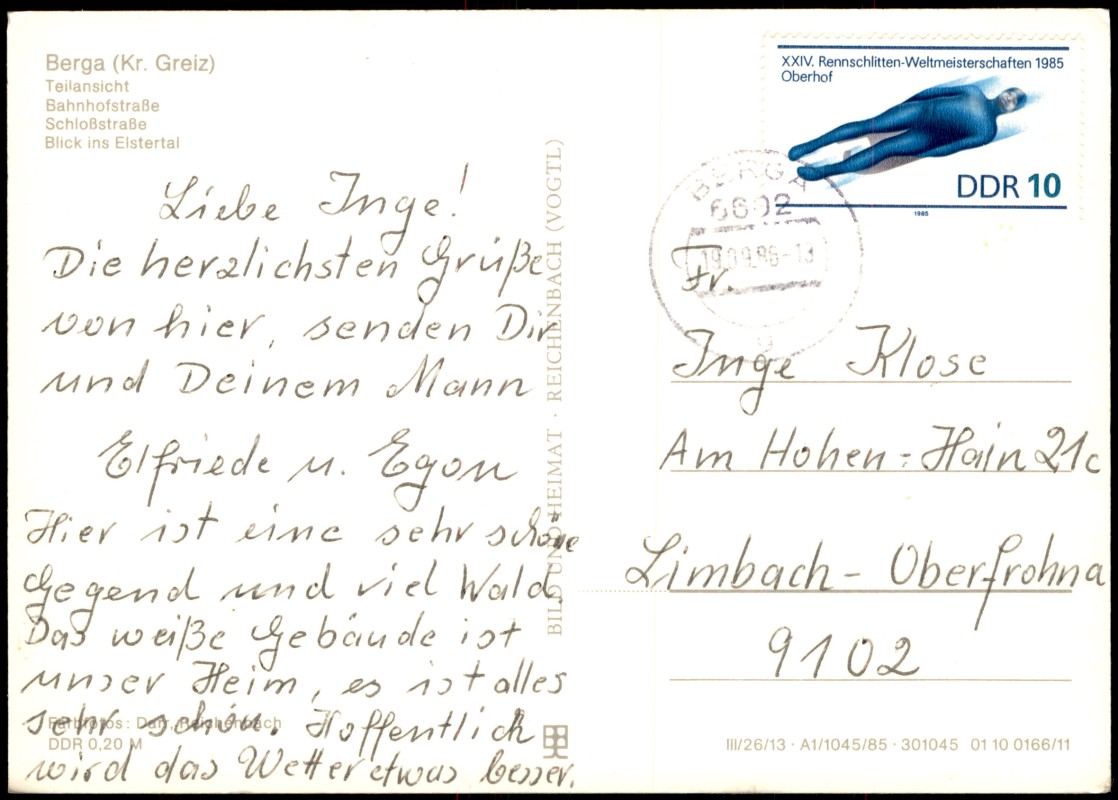 Berga (Kr. Greiz)
Teilansicht
Bahnhofstraße
Schloßstraße
Blick ins Elstertal
Liebe Inge!
Die herzlichsten Grüße
von hier, senden Dir
und Deinem Mann
Elfriede u. Egon
Hier ist eine sehr schöne
Gegend und viel Wald.
Das weiße Gebäude ist
unser Heim, es ist alles
sehr schön. Hoffentlich
wird das Wetter etwas besser.
Farbfotos: Darr, Reichenbach
DDR 0,20 M
BILD UND HEIMAT · REICHENBACH (VOGTL)
XXIV. Rennschlitten-Weltmeisterschaften 1985
Oberhof
DDR 10
1985
BERGA
6602
19.09.86-13
g
Fr.
Inge Klose
Am Hohen-Hain 21c
Limbach-Oberfrohna
9102
III/26/13 · A1/1045/85 · 301045 01 10 0166/11